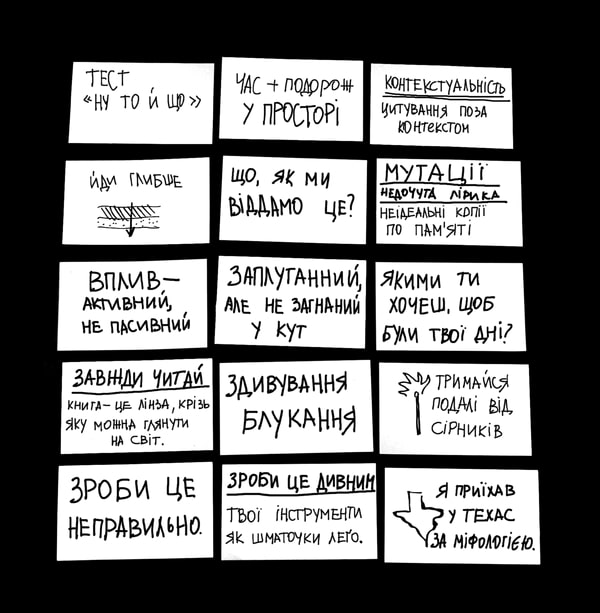 ТЕСТ
«НУ ТО Й ЩО»
ЧАС + ПОДОРОЖ
У ПРОСТОРІ
КОНТЕКСТУАЛЬНІСТЬ
ЦИТУВАННЯ ПОЗА
КОНТЕКСТОМ
ЙДИ ГЛИБШЕ
ЩО, ЯК МИ
ВІДДАМО ЦЕ?
МУТАЦІЇ
НЕДОЧУТА ЛІРИКА
НЕІДЕАЛЬНІ КОПІЇ
ПО ПАМ'ЯТІ
ВПЛИВ —
АКТИВНИЙ,
НЕ ПАСИВНИЙ
ЗАПЛУТАННИЙ,
АЛЕ НЕ ЗАГНАНИЙ
У КУТ
ЯКИМИ ТИ
ХОЧЕШ, ЩОБ
БУЛИ ТВОЇ ДНІ?
ЗАВЖДИ ЧИТАЙ
КНИГА – ЦЕ ЛІНЗА, КРІЗЬ
ЯКУ МОЖНА ГЛЯНУТИ
НА СВІТ.
ЗДИВУВАННЯ
БЛУКАННЯ
ТРИМАЙСЯ
ПОДАЛІ ВІД
СІРНИКІВ
ЗРОБИ ЦЕ
НЕПРАВИЛЬНО.
ЗРОБИ ЦЕ ДИВНИМ
ТВОЇ ІНСТРУМЕНТИ
ЯК ШМАТОЧКИ ЛЕҐО.
Я ПРИЇХАВ
У ТЕХАС
ЗА МІФОЛОГІЄЮ.